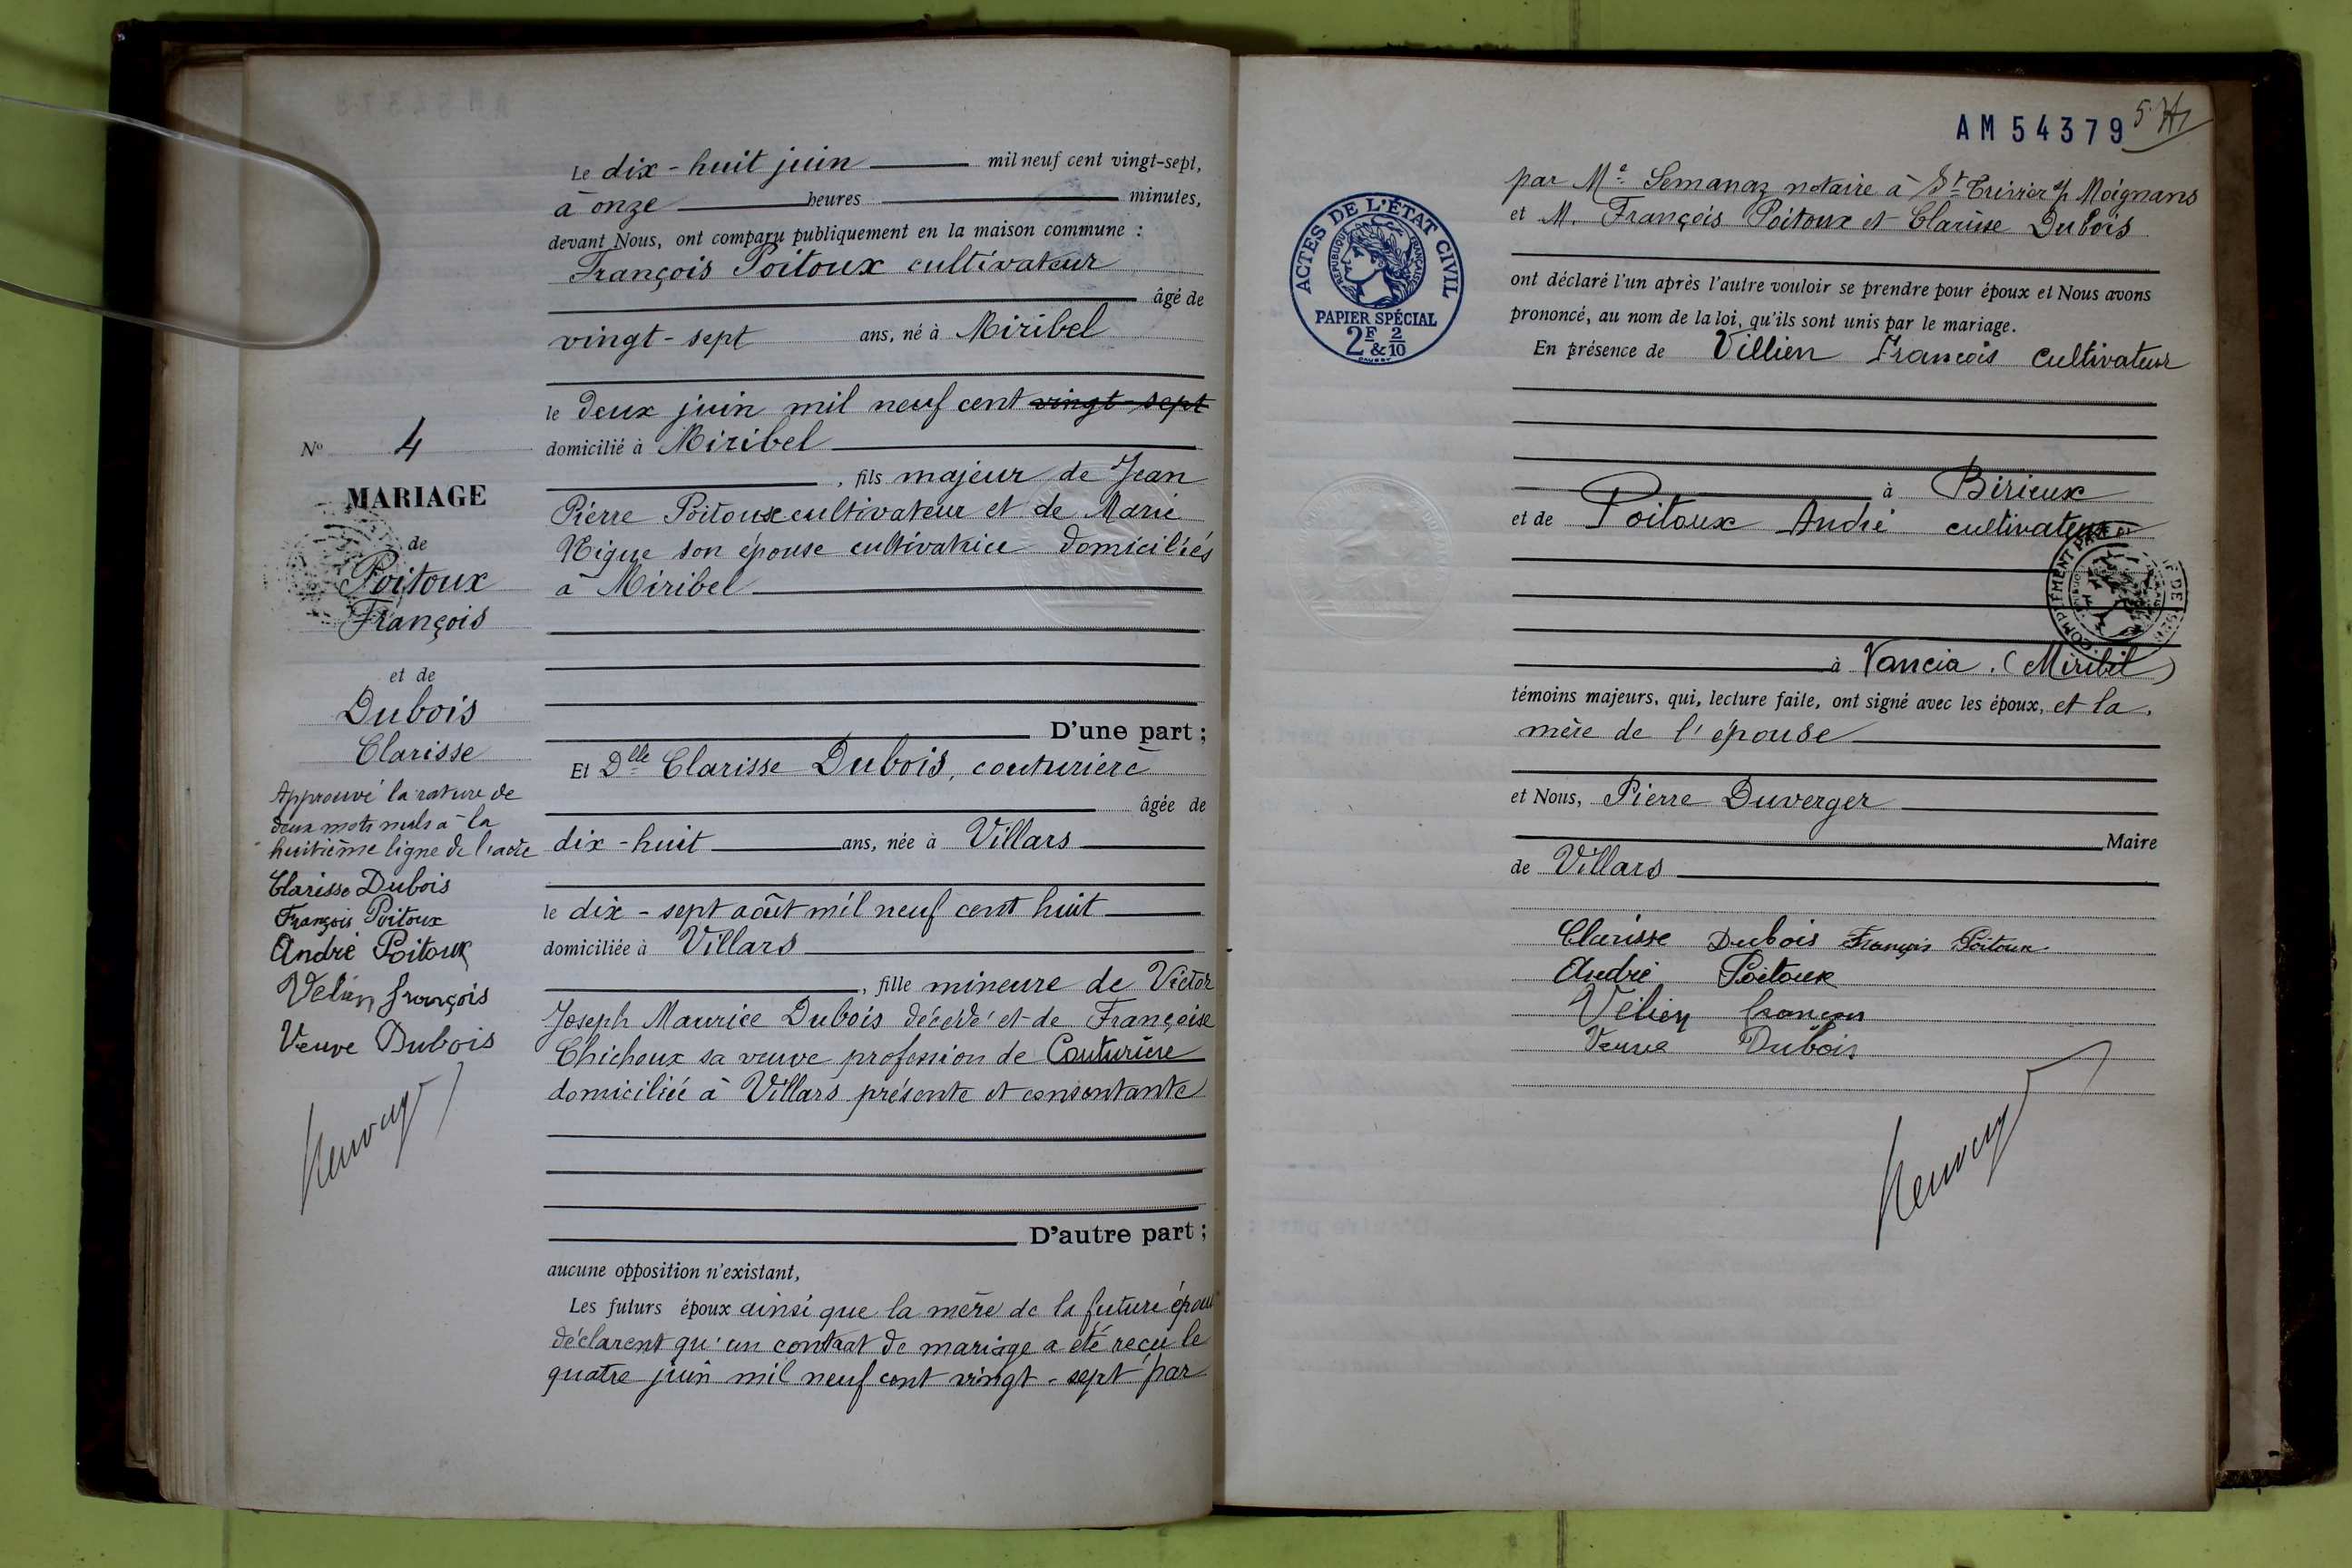 Le dix-huit juin mil neuf cent vingt-sept,
à onze heures minutes,
devant Nous, ont comparu publiquement en la maison commune :
François Poitoux cultivateur
âgé de
vingt-sept ans, né à Miribel
le deux juin mil neuf cent vingt-sept
domicilié à Miribel
, fils majeur de Jean
Pierre Poitoux cultivateur et de Marie
Nigue son épouse cultivatrice domiciliés
à Miribel
D'une part ;
Et Dlle Clarisse Dubois, couturière
âgée de
dix-huit ans, née à Villars
le dix-sept août mil neuf cent huit
domiciliée à Villars
, fille mineure de Victor
Joseph Maurice Dubois décédé et de Françoise
Chicheux sa veuve profession de Couturière
domiciliée à Villars présente et consentante
D'autre part ;
aucune opposition n'existant,
Les futurs époux ainsi que la mère de la future épouse
déclarent qu'un contrat de mariage a été reçu le
quatre juin mil neuf cent vingt-sept par
No 4
MARIAGE
de
Poitoux
François
et de
Dubois
Clarisse
Approuvé la rature de
deux mots nuls à la
huitième ligne de l'acte
Clarisse Dubois
François Poitoux
André Poitoux
Velien françois
Veuve Dubois
AM54379
ACTES DE L'ÉTAT CIVIL
RÉPUBLIQUE FRANÇAISE
PAPIER SPÉCIAL
2F & 2/10
par Me Semanaz notaire à St Trivier s/ Moignans
et M. François Poitoux et Clarisse Dubois
ont déclaré l'un après l'autre vouloir se prendre pour époux et Nous avons
prononcé, au nom de la loi, qu'ils sont unis par le mariage.
En présence de Villien François cultivateur
à Birieux
et de Poitoux André cultivateur
à Vancia. (Miribel)
témoins majeurs, qui, lecture faite, ont signé avec les époux, et la
mère de l'épouse
et Nous, Pierre Duverger
Maire
de Villars
Clarisse Dubois François Poitoux
André Poitoux
Velien françois
Veuve Dubois